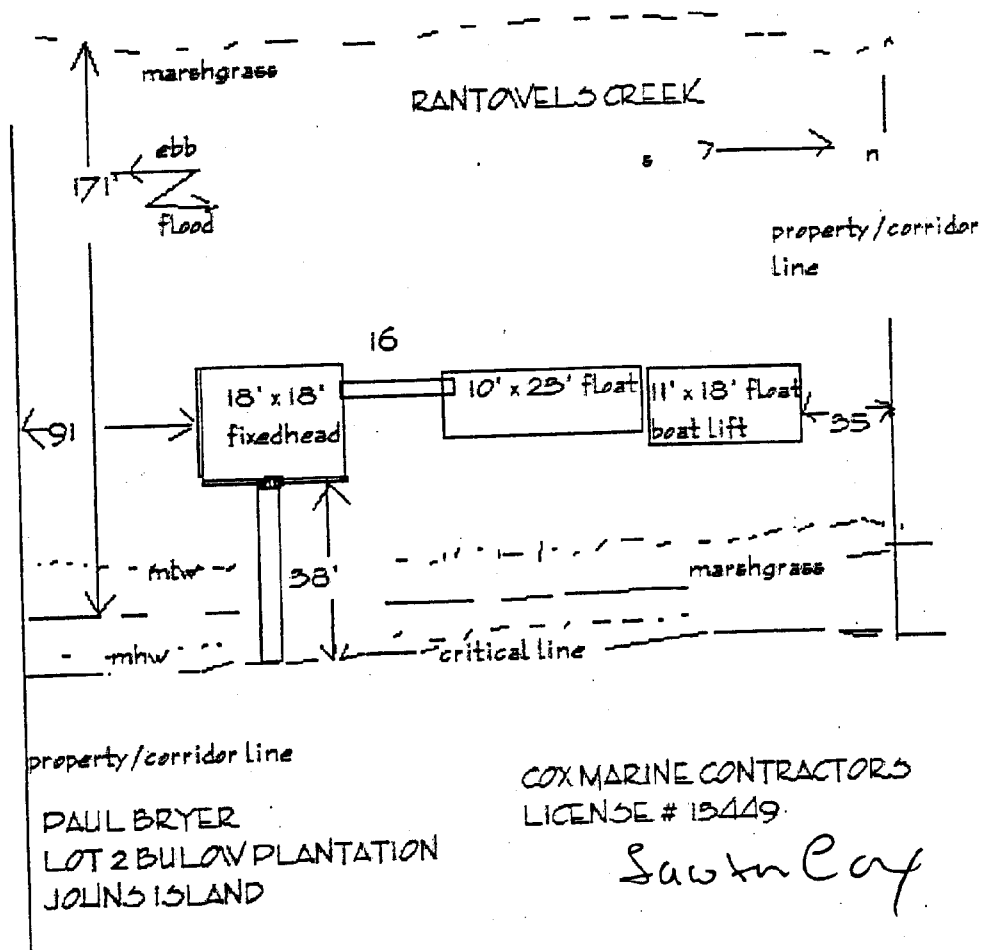 marshgrass
RANTOWELS CREEK
ebb
s
n
171'
flood
property/corridor
line
16
18' x 18'
fixedhead
10' x 25' float
11' x 18' float
boat lift
91
35
mlw
38'
marshgrass
mhw
critical line
property/corridor line
PAUL BRYER
LOT 2 BULOW PLANTATION
JOHNS ISLAND
COX MARINE CONTRACTORS
LICENSE # 13449
Cox